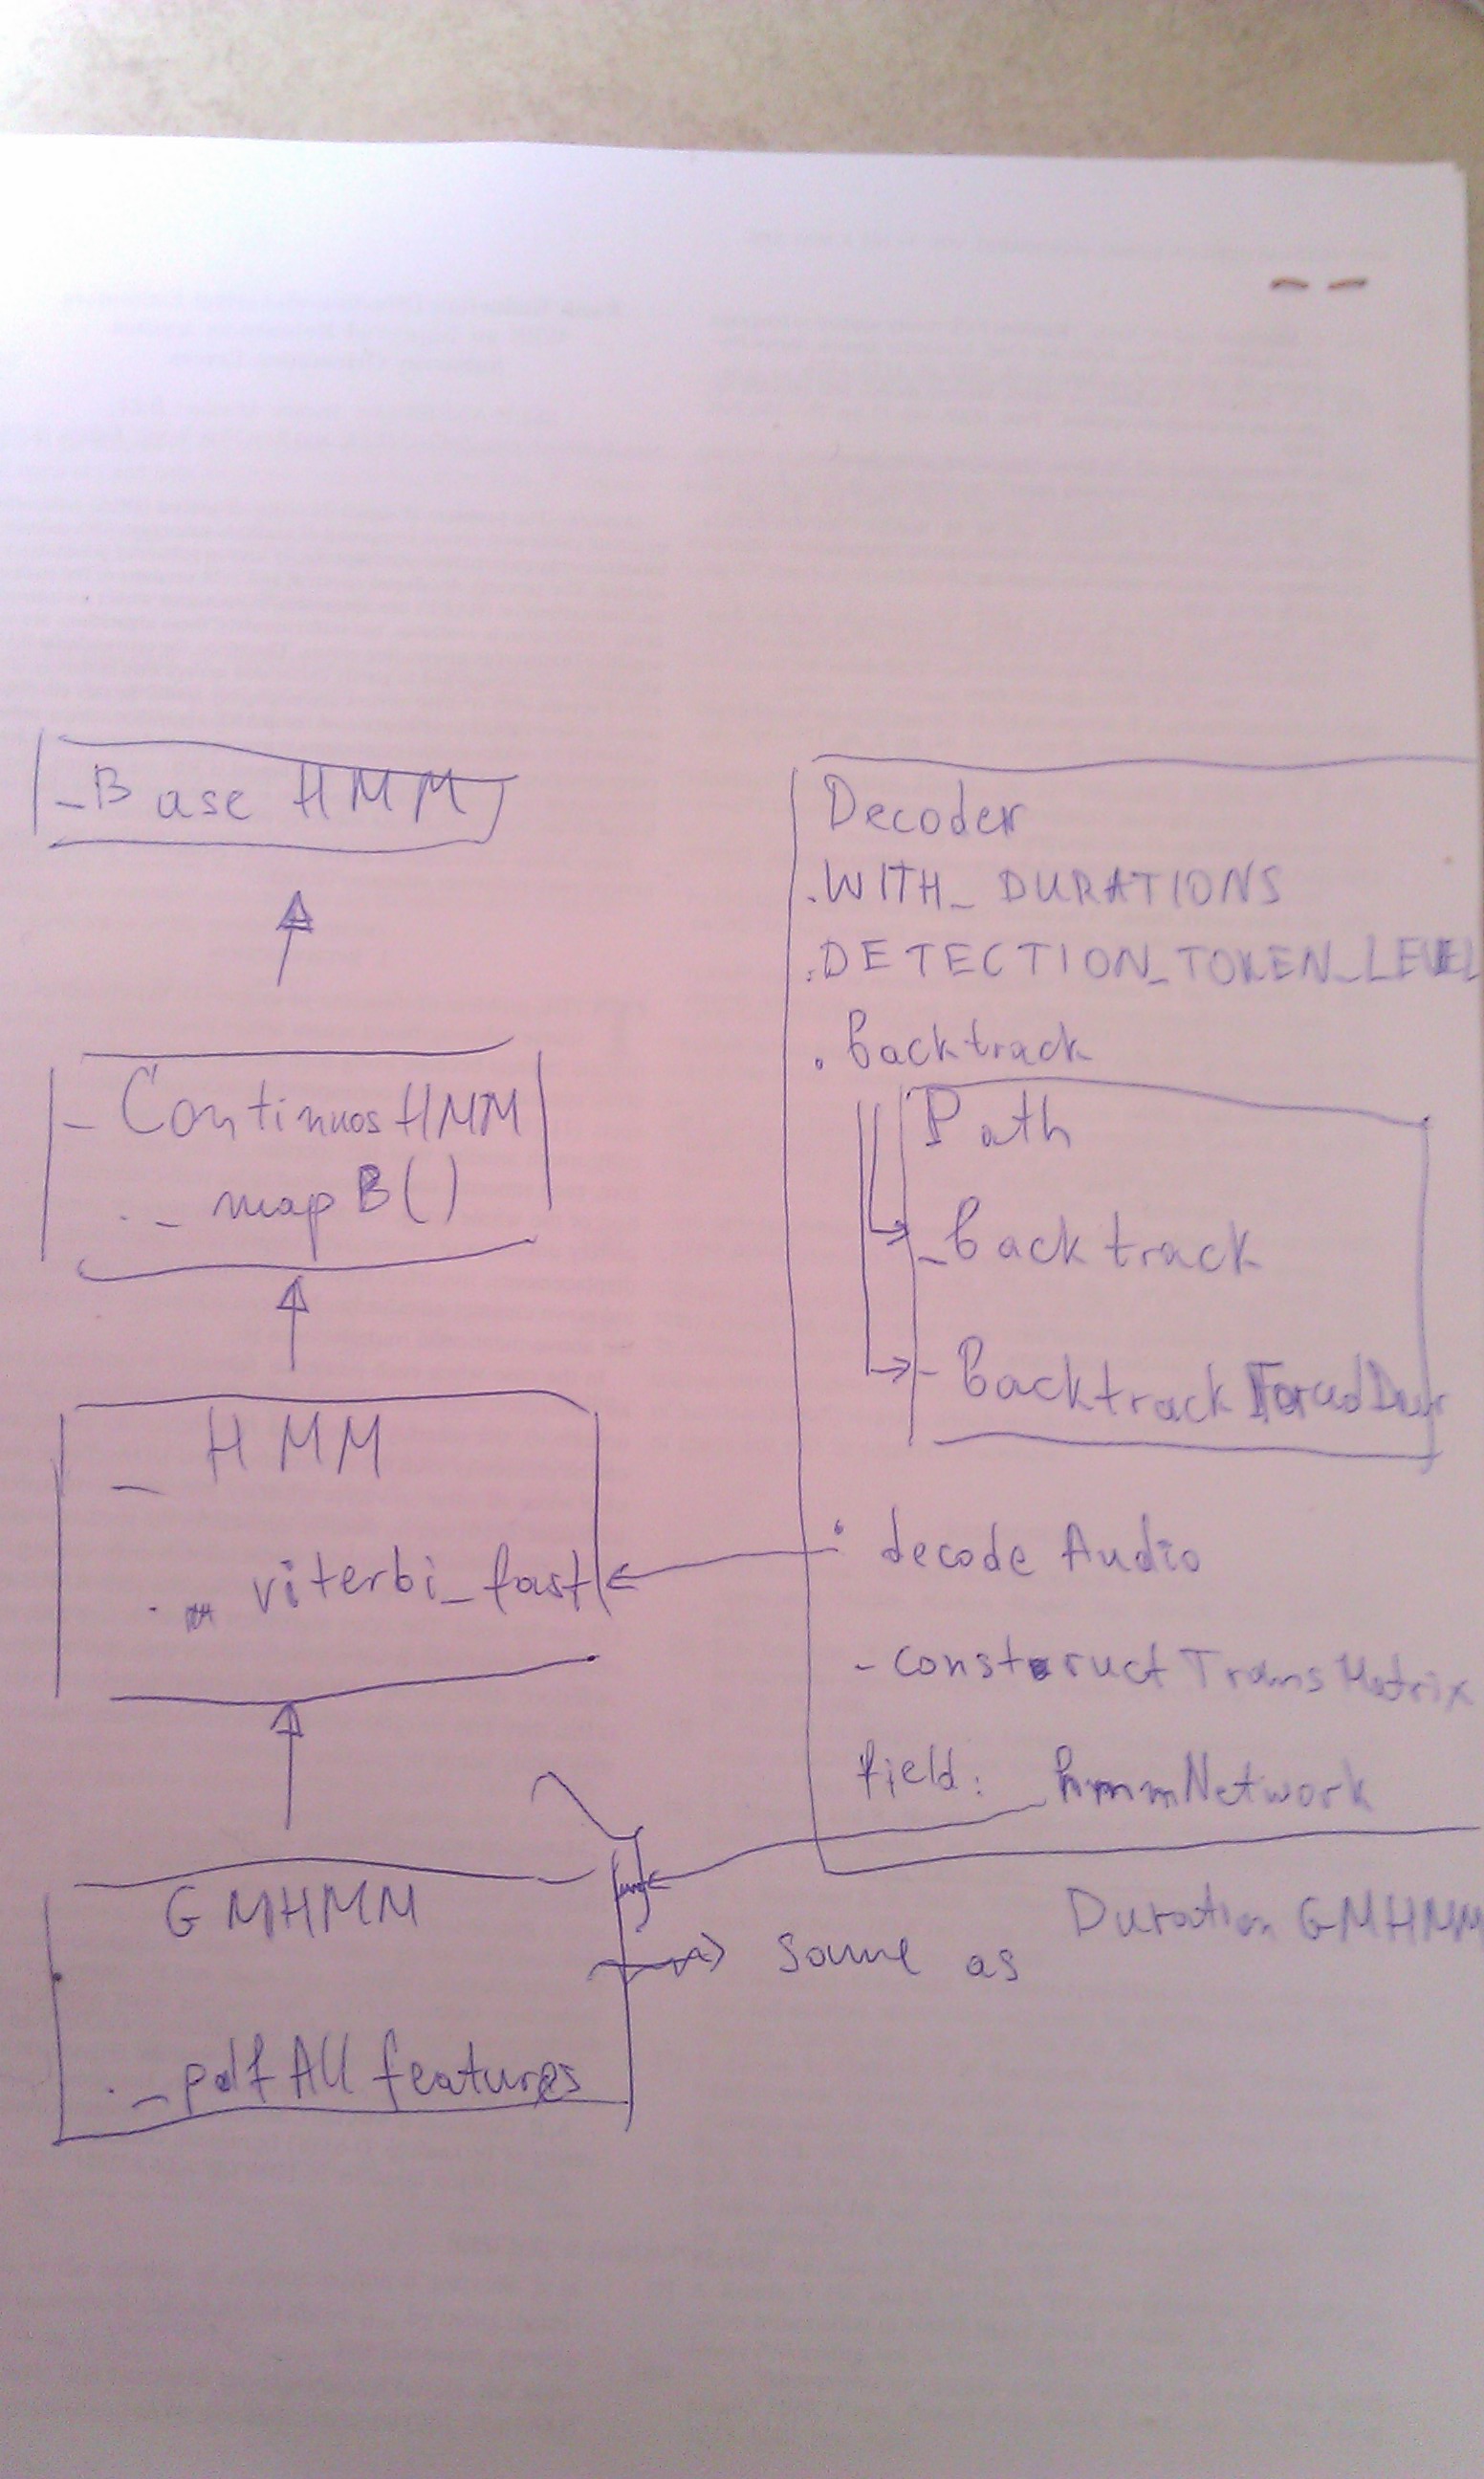 _Base HMM
_ContinuosHMM
._ mapB()
_ HMM
._ viterbi_fast
GMHMM
._pdfAllfeatures
Decoder
.WITH_DURATIONS
.DETECTION_TOKEN_LEVEL
. backtrack
Path
_backtrack
- backtrackForcedDur
. decodeAudio
- constructTransMatrix
field: hmmNetwork
same as DurationGMHMM